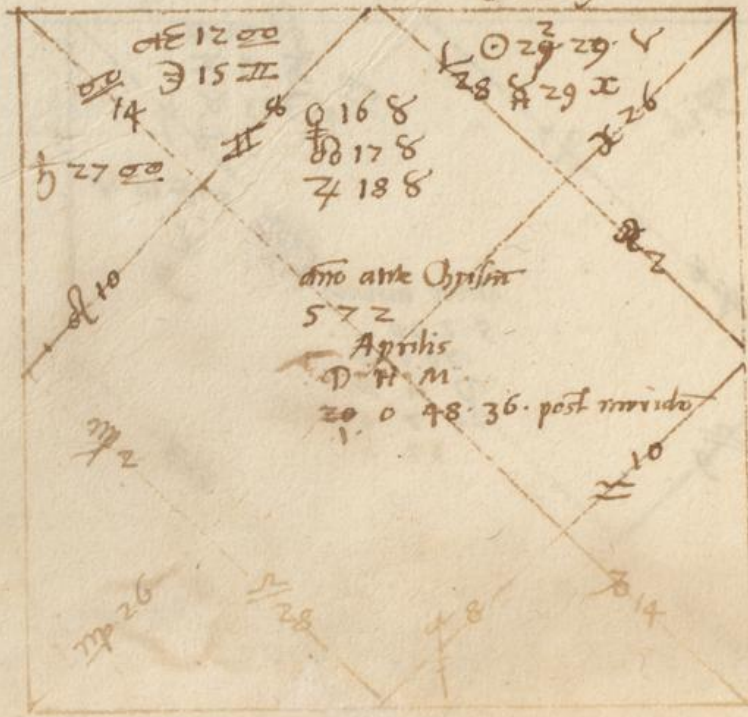 12 ♋
☽ 15 ♊
♋ 14
♊ 8
♄ 27 ♋
♀ 16 ♉
☊ 17 ♉
♃ 18 ♉
☉ 29 29 ♈
2
28
29
♉ 26
2
♌ 10
anno ante Christum
5 7 2
Aprilis
D · H · M
20 0 48 · 36 · post meridie
1
♍ 2
♍ 26
♎ 28
♐ 8
♑ 14
♒ 10